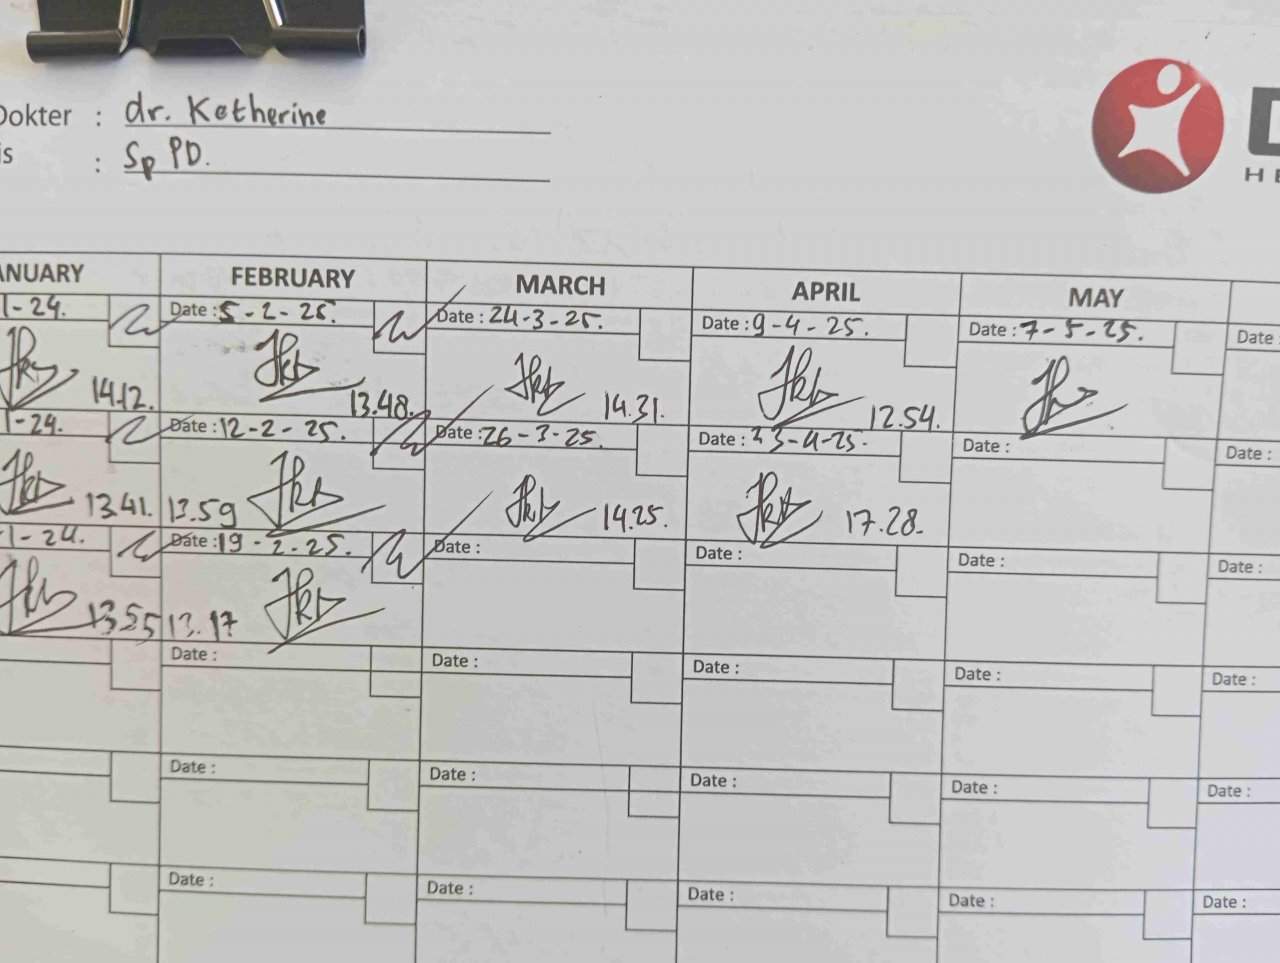 Dokter : dr. Katherine
is : Sp PD.
D
HE
ANUARY FEBRUARY MARCH APRIL MAY
1-24. Date : 5-2-25. Date : 24-3-25. Date : 9-4-25. Date : 7-5-25. Date :
14.12. 13.48. 14.31. 12.54.
1-24. Date : 12-2-25. Date : 26-3-25. Date : 23-4-25. Date : Date :
13.41. 13.59 14.25. 17.28.
-1-24. Date : 19-2-25. Date : Date : Date : Date :
13.55 13.17
Date : Date : Date : Date : Date :
Date : Date : Date : Date : Date :
Date : Date : Date : Date : Date :